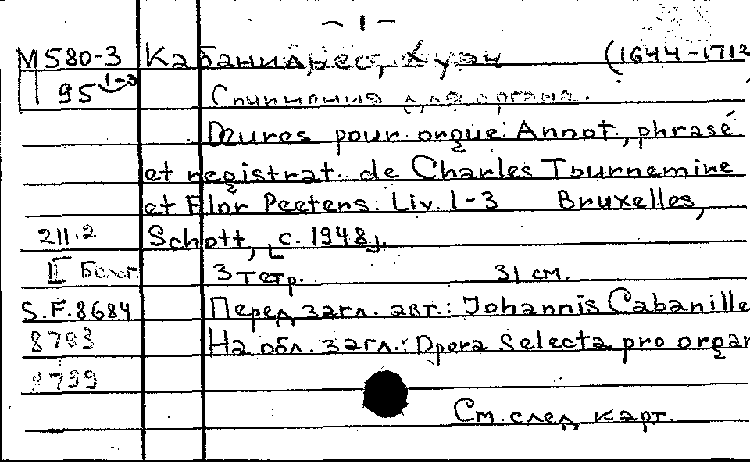 - 1 -
М580-3 Кабанильес, Хуан (1644-1712
95 1-3 Сочинения для органа.
Œuvres pour orgue. Annot., phrasé
et registrat. de Charles Tournemire
et Flor Peeters. Liv. 1-3 Bruxelles,
211.2 Schott, [c. 1948].
II Бельг. 3 тетр. 31 см.
S.F.8684 Перед загл. авт.: Johannis Cabanille
8703 На обл. загл.: Opera selecta pro organ
8799
См. след. карт.